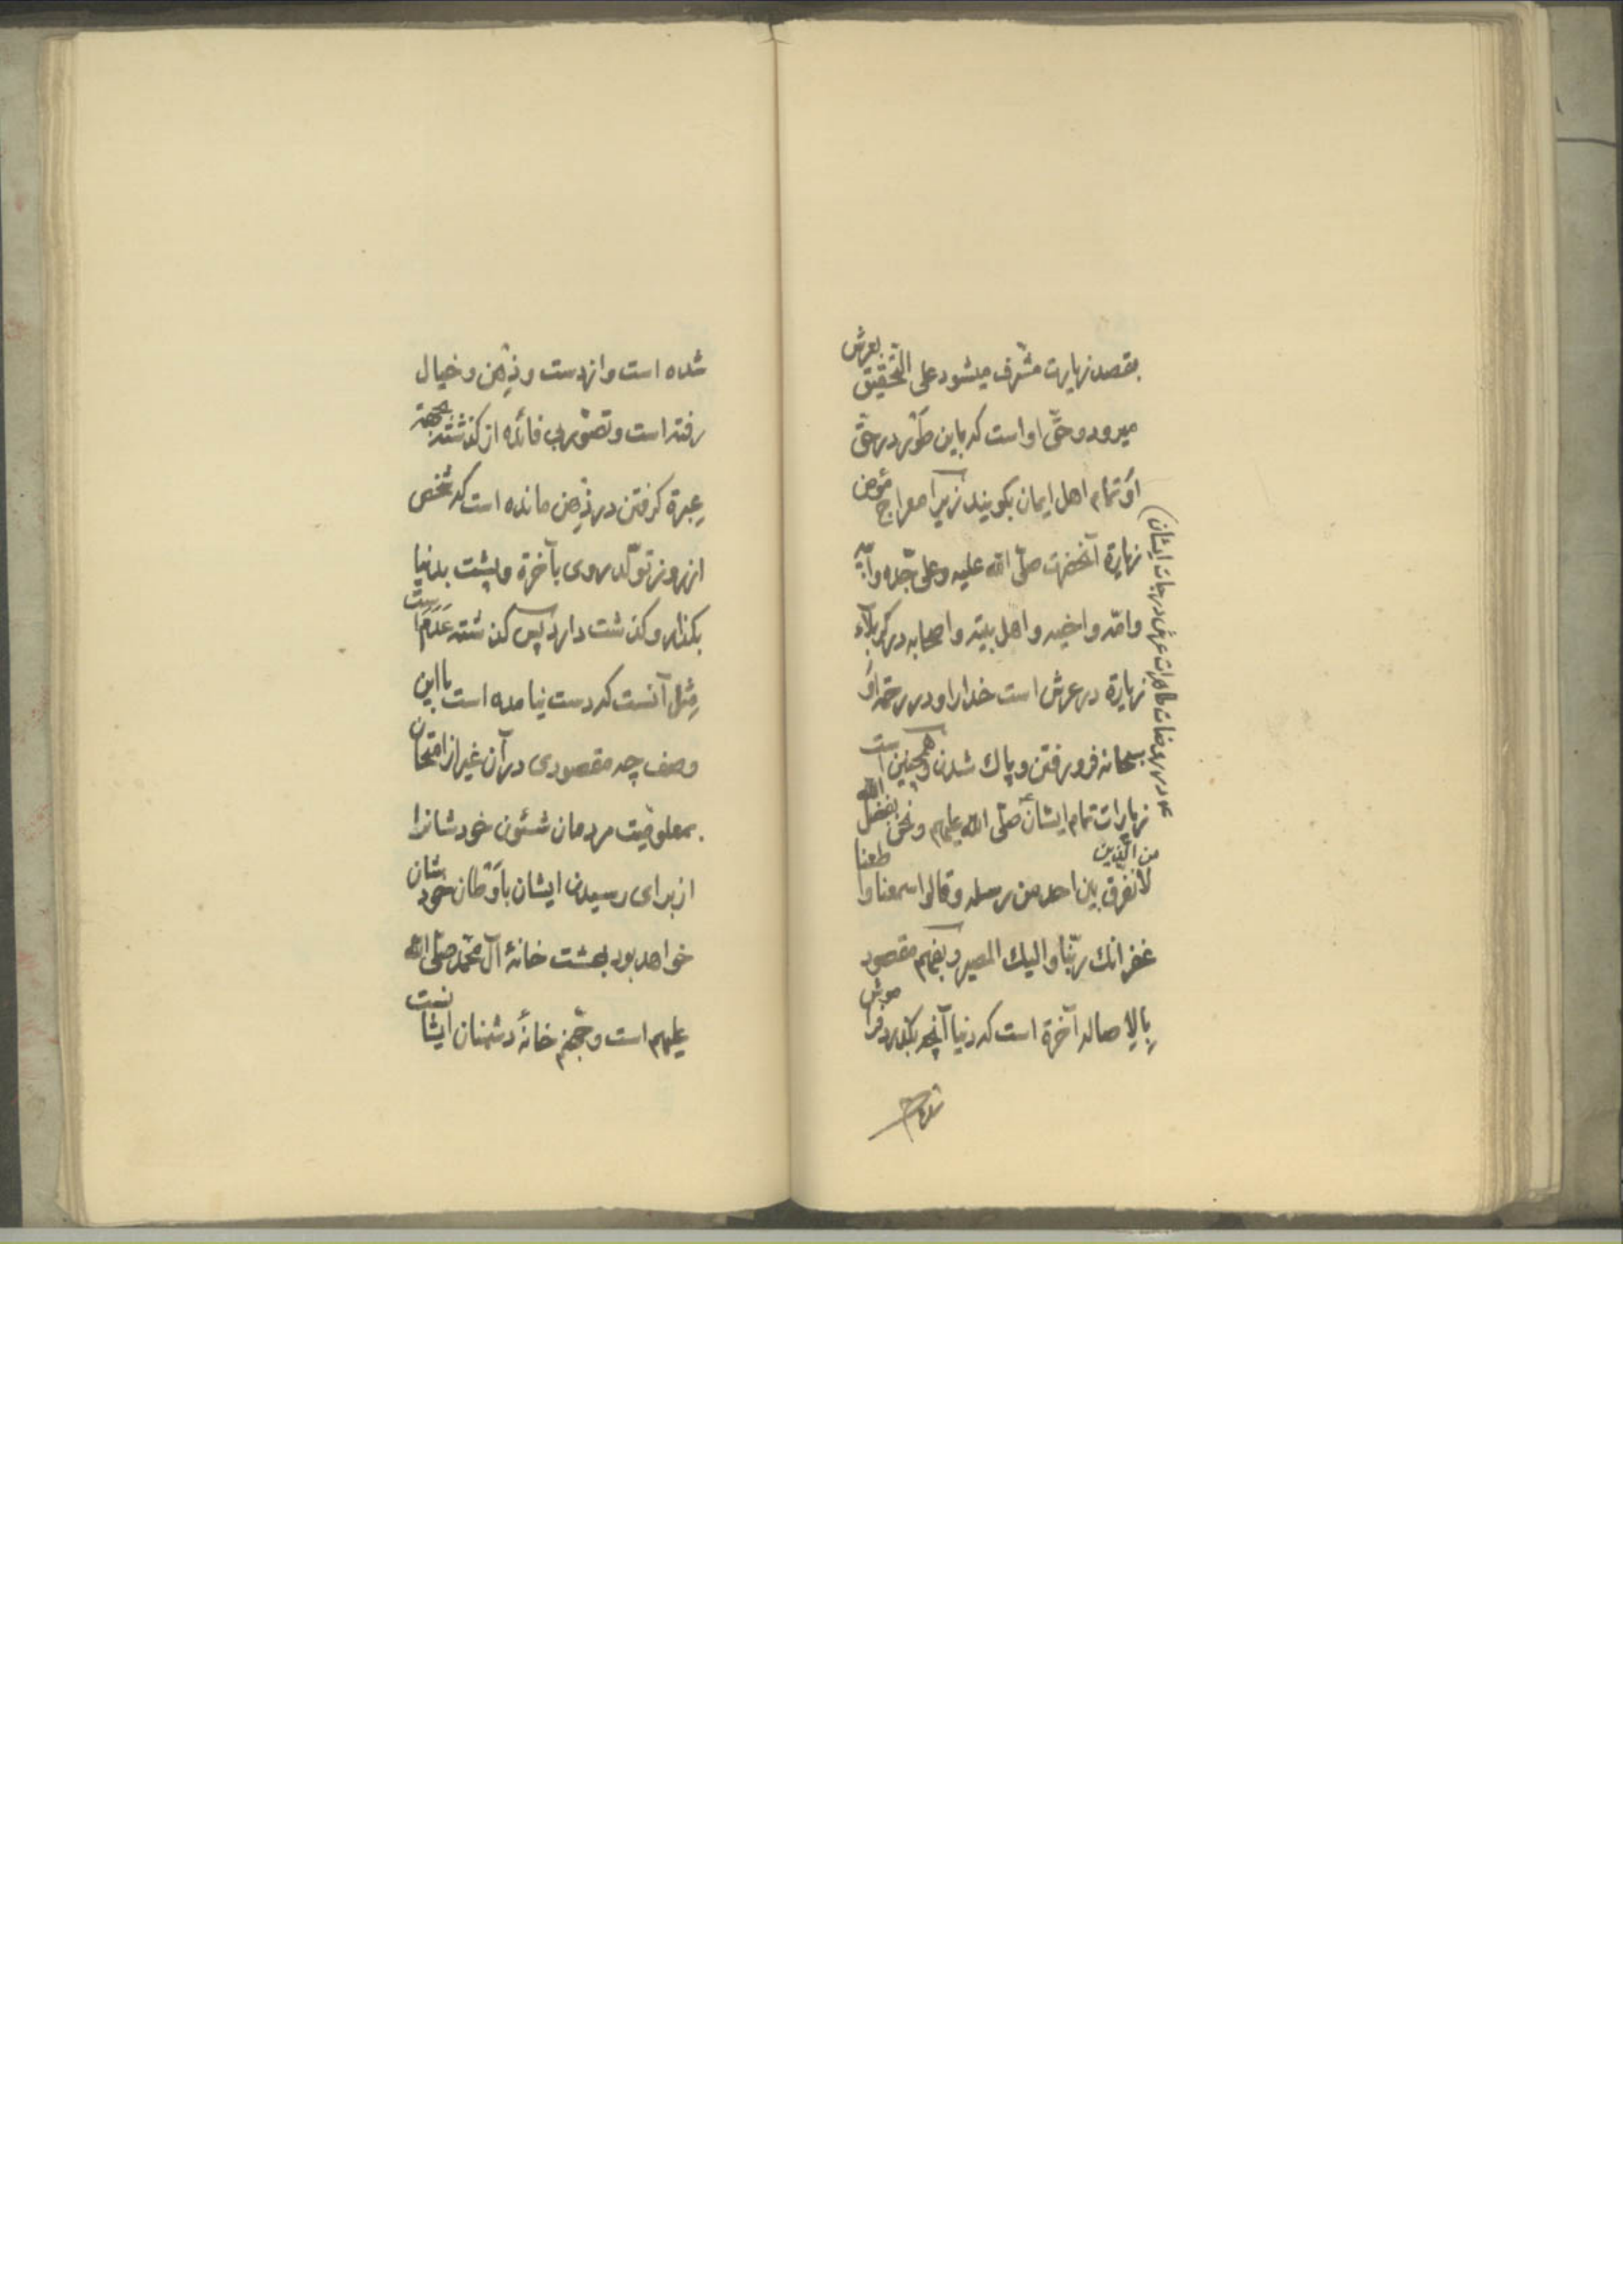 بقصد زیارت مشرف میشود علی التحقیق بعرش
میرود و حق او است که باین طور در حق
او تمام اهل ایمان بکویند زیرا معراج مؤمن
زیارة آنحضرت صلّی الله علیه و علی جدّه و ابیه
و امّه و اخیه و اهل بیته و اصحابه در کربلاء
زیارة در عرش است خدا را و در رحمة او
سبحانه فرو رفتن و پاك شدن و همچنین است
زیارات تمام ایشان صلّی الله علیهم و نحن بفضل الله
من الّذین
لا نفرق بین احد من رسله و قالوا سمعنا و اطعنا
غفرانك ربّنا و الیك المصیر و بفهم مقصود
بالاصاله آخرة است که دنیا آنچه بکذرد فراموش
در روضات طاهرات عرش درجات ایشان)
شده
شده است و از دست و ذهن و خیال
رفته است و تصوّر بی فائده از کذشته بجهة
عبرة کرفتن در ذهن مانده است که شخص
از روز تولّد روی بآخرة و پشت بدنیا
بکذار و کذشت دارد پس کذشته عدم است
مثل آنست که دست نیامده است با این
وصف چه مقصودی در آن غیر از امتحان
بمعلومیت مردمان شئون خودشانرا
از برای رسیدن ایشان باوطان خودشان
خواهد بود بهشت خانهٔ آل محمّد صلّی الله
علیهم است و جهنم خانهٔ دشمنان ایشانست